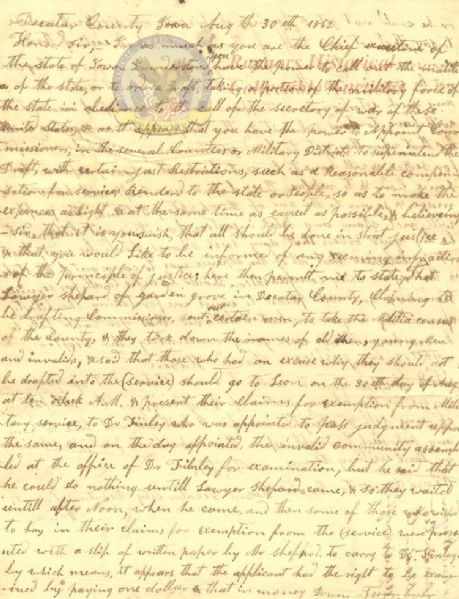 Decatur County Iowa Aug th 30 eth 1862
Honord Sir, In as much as you are the Chief executive of
the state of Iowa & understand have the power to call out the militi
a of the state, or to order a draft, taking a portion of the military force of
the state in obedience to the call of the secretary of war of these
united States, & as it appears that you have the power to Appoint Com
missioners, in the several Counties or Military Districts to superintend the
Draft, with certain just Restrictions, such as a Reasonable compen
sation for services Renderd to the state or people, so as to make the
expences as light & at the same time as equel as possible, & believeing
Sir, that it is your wish, that all should be done in strict justice &
that you would Like to be informed of any seeming infractions
of the principle of justice; here then permit me to state, that
Lawyer Shepard of garden grove in Decatur County, Claiming to
be drafting Commissioner, sent certain men, to take the Militia census
of the County, & they took down the names of old then, young Men
and invalids, & said that those who had an excuse why they should not
be drafted into the (service) should go to Leon on the 30 eth day of Aug
at ten oclock A.M. & present their Claims for exemption from Mili
tary service, to Dr Finley who was appointed to pass judgment uppon
the same, and on the day appointed the invalid community assemb
led at the office of Dr Finley for examination, but he said that
he could do nothing untill Lawyer Shepard came, & so they waited
untill after Noon, when he came, and then some of those who wishd
to Lay in their claims for exemption from the (service) were prese
nted with a slip of written paper by Mr Shepard. to carry to Dr Finley
by which means, it appears that the applicant had the right to be exam
ined by paying one dollar & that in money Down.